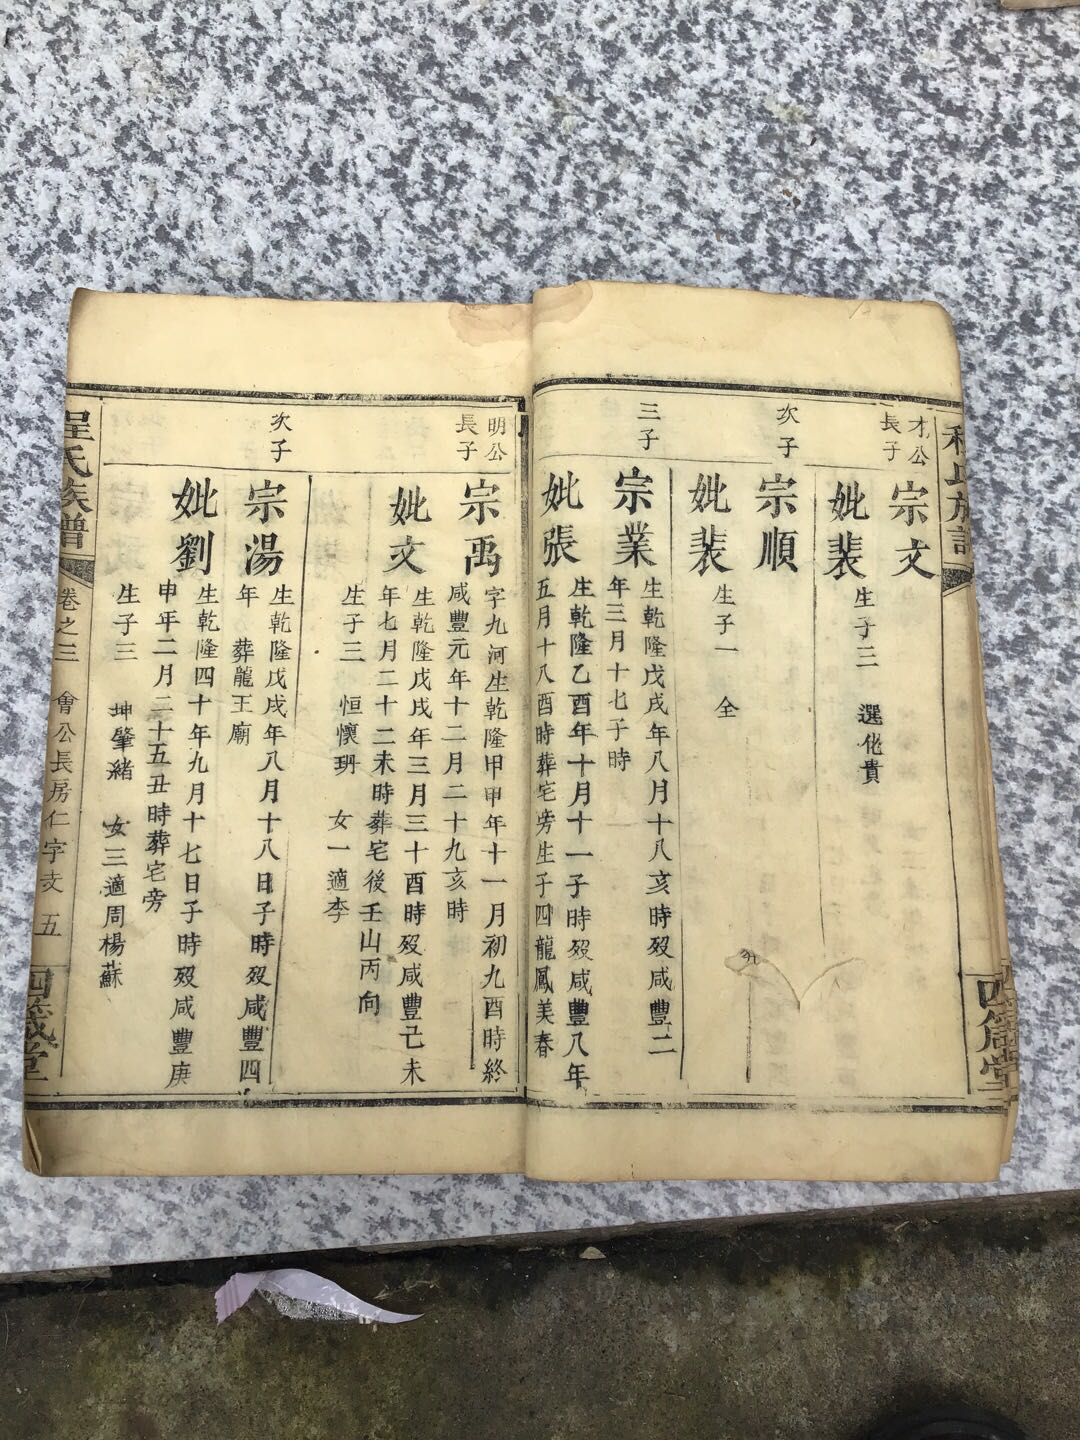 程氏族譜
四箴堂
才公
長子
宗文
妣裴
生子三 選佬貴
次子
宗順
妣裴
生子一 全
三子
宗業
生乾隆戊戌年八月十八亥時歿咸豐二
年三月十七子時
妣張
生乾隆乙酉年十月十一子時歿咸豐八年
五月十八酉時葬宅旁生子四龍鳳美春
明公
長子
宗禹
字九河生乾隆甲甲年十一月初九酉時終
咸豐元年十二月二十九亥時
妣文
生乾隆戊戌年三月三十酉時歿咸豐己未
年七月二十二未時葬宅後壬山丙向
生子三 恒懷玥 女一適李
次子
宗湯
生乾隆戊戌年八月十八日子時歿咸豐四
年 葬龍王廟
妣劉
生乾隆四十年九月十七日子時歿咸豐庚
申年二月二十五丑時葬宅旁
生子三 坤肇緒 女三適周楊蘇
程氏族譜
卷之三 會公長房仁字支 五
四箴堂